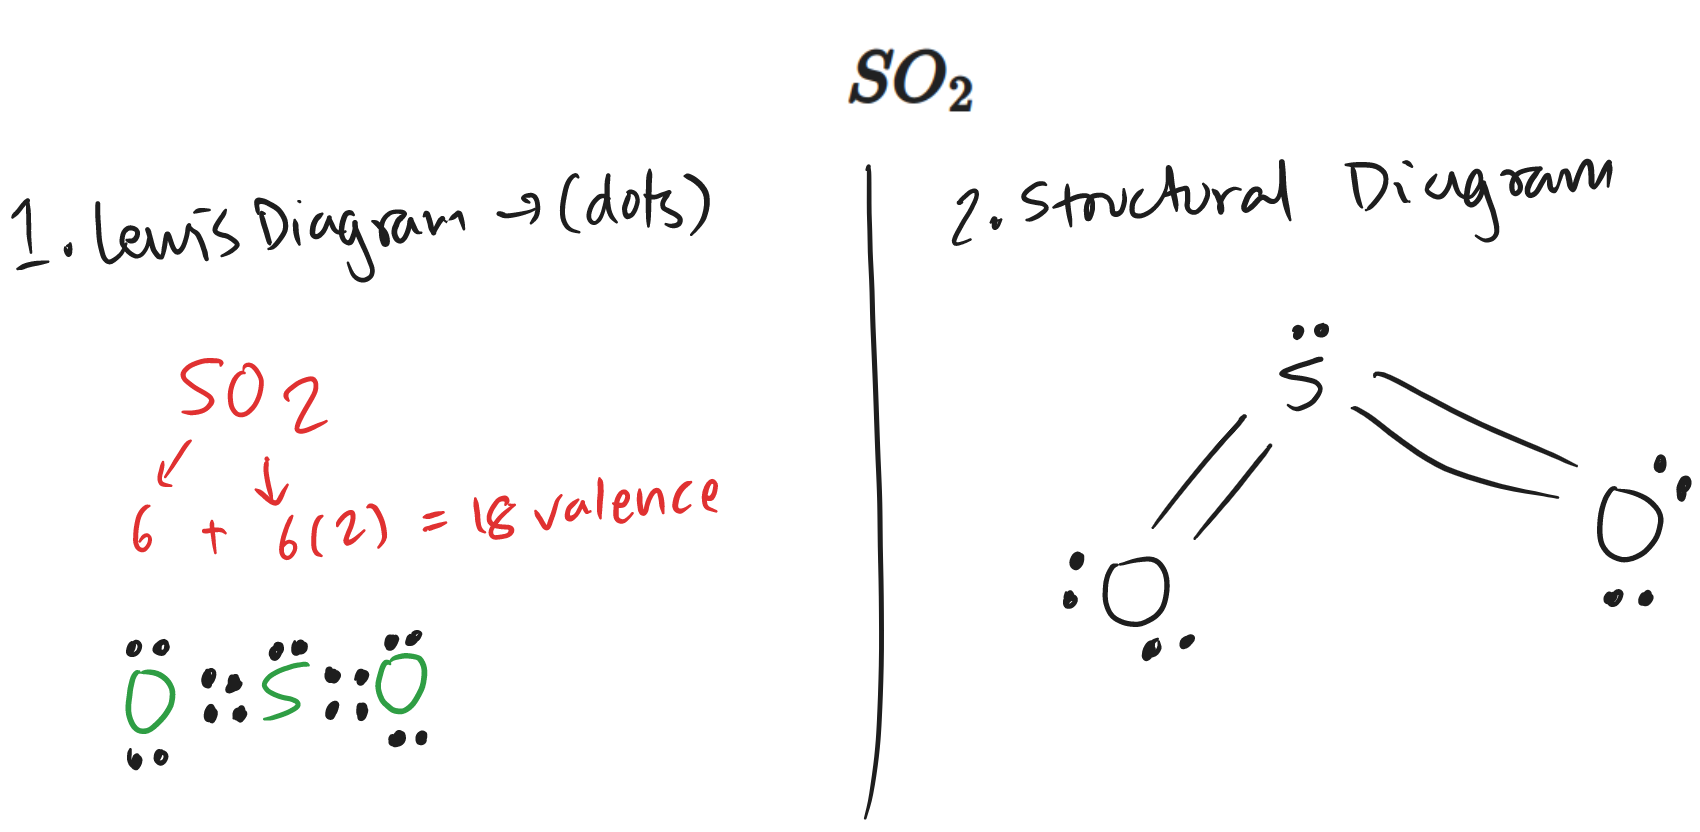 SO₂
1. Lewis Diagram → (dots)
SO2
6 + 6(2) = 18 valence
O S O
2. Structural Diagram
S
O
O